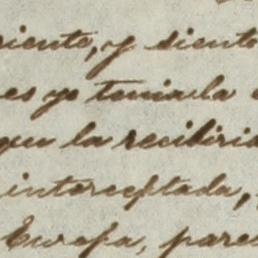 ciento, y siento
es yo temia la
que la recibiria
interceptada,
Europa, pare